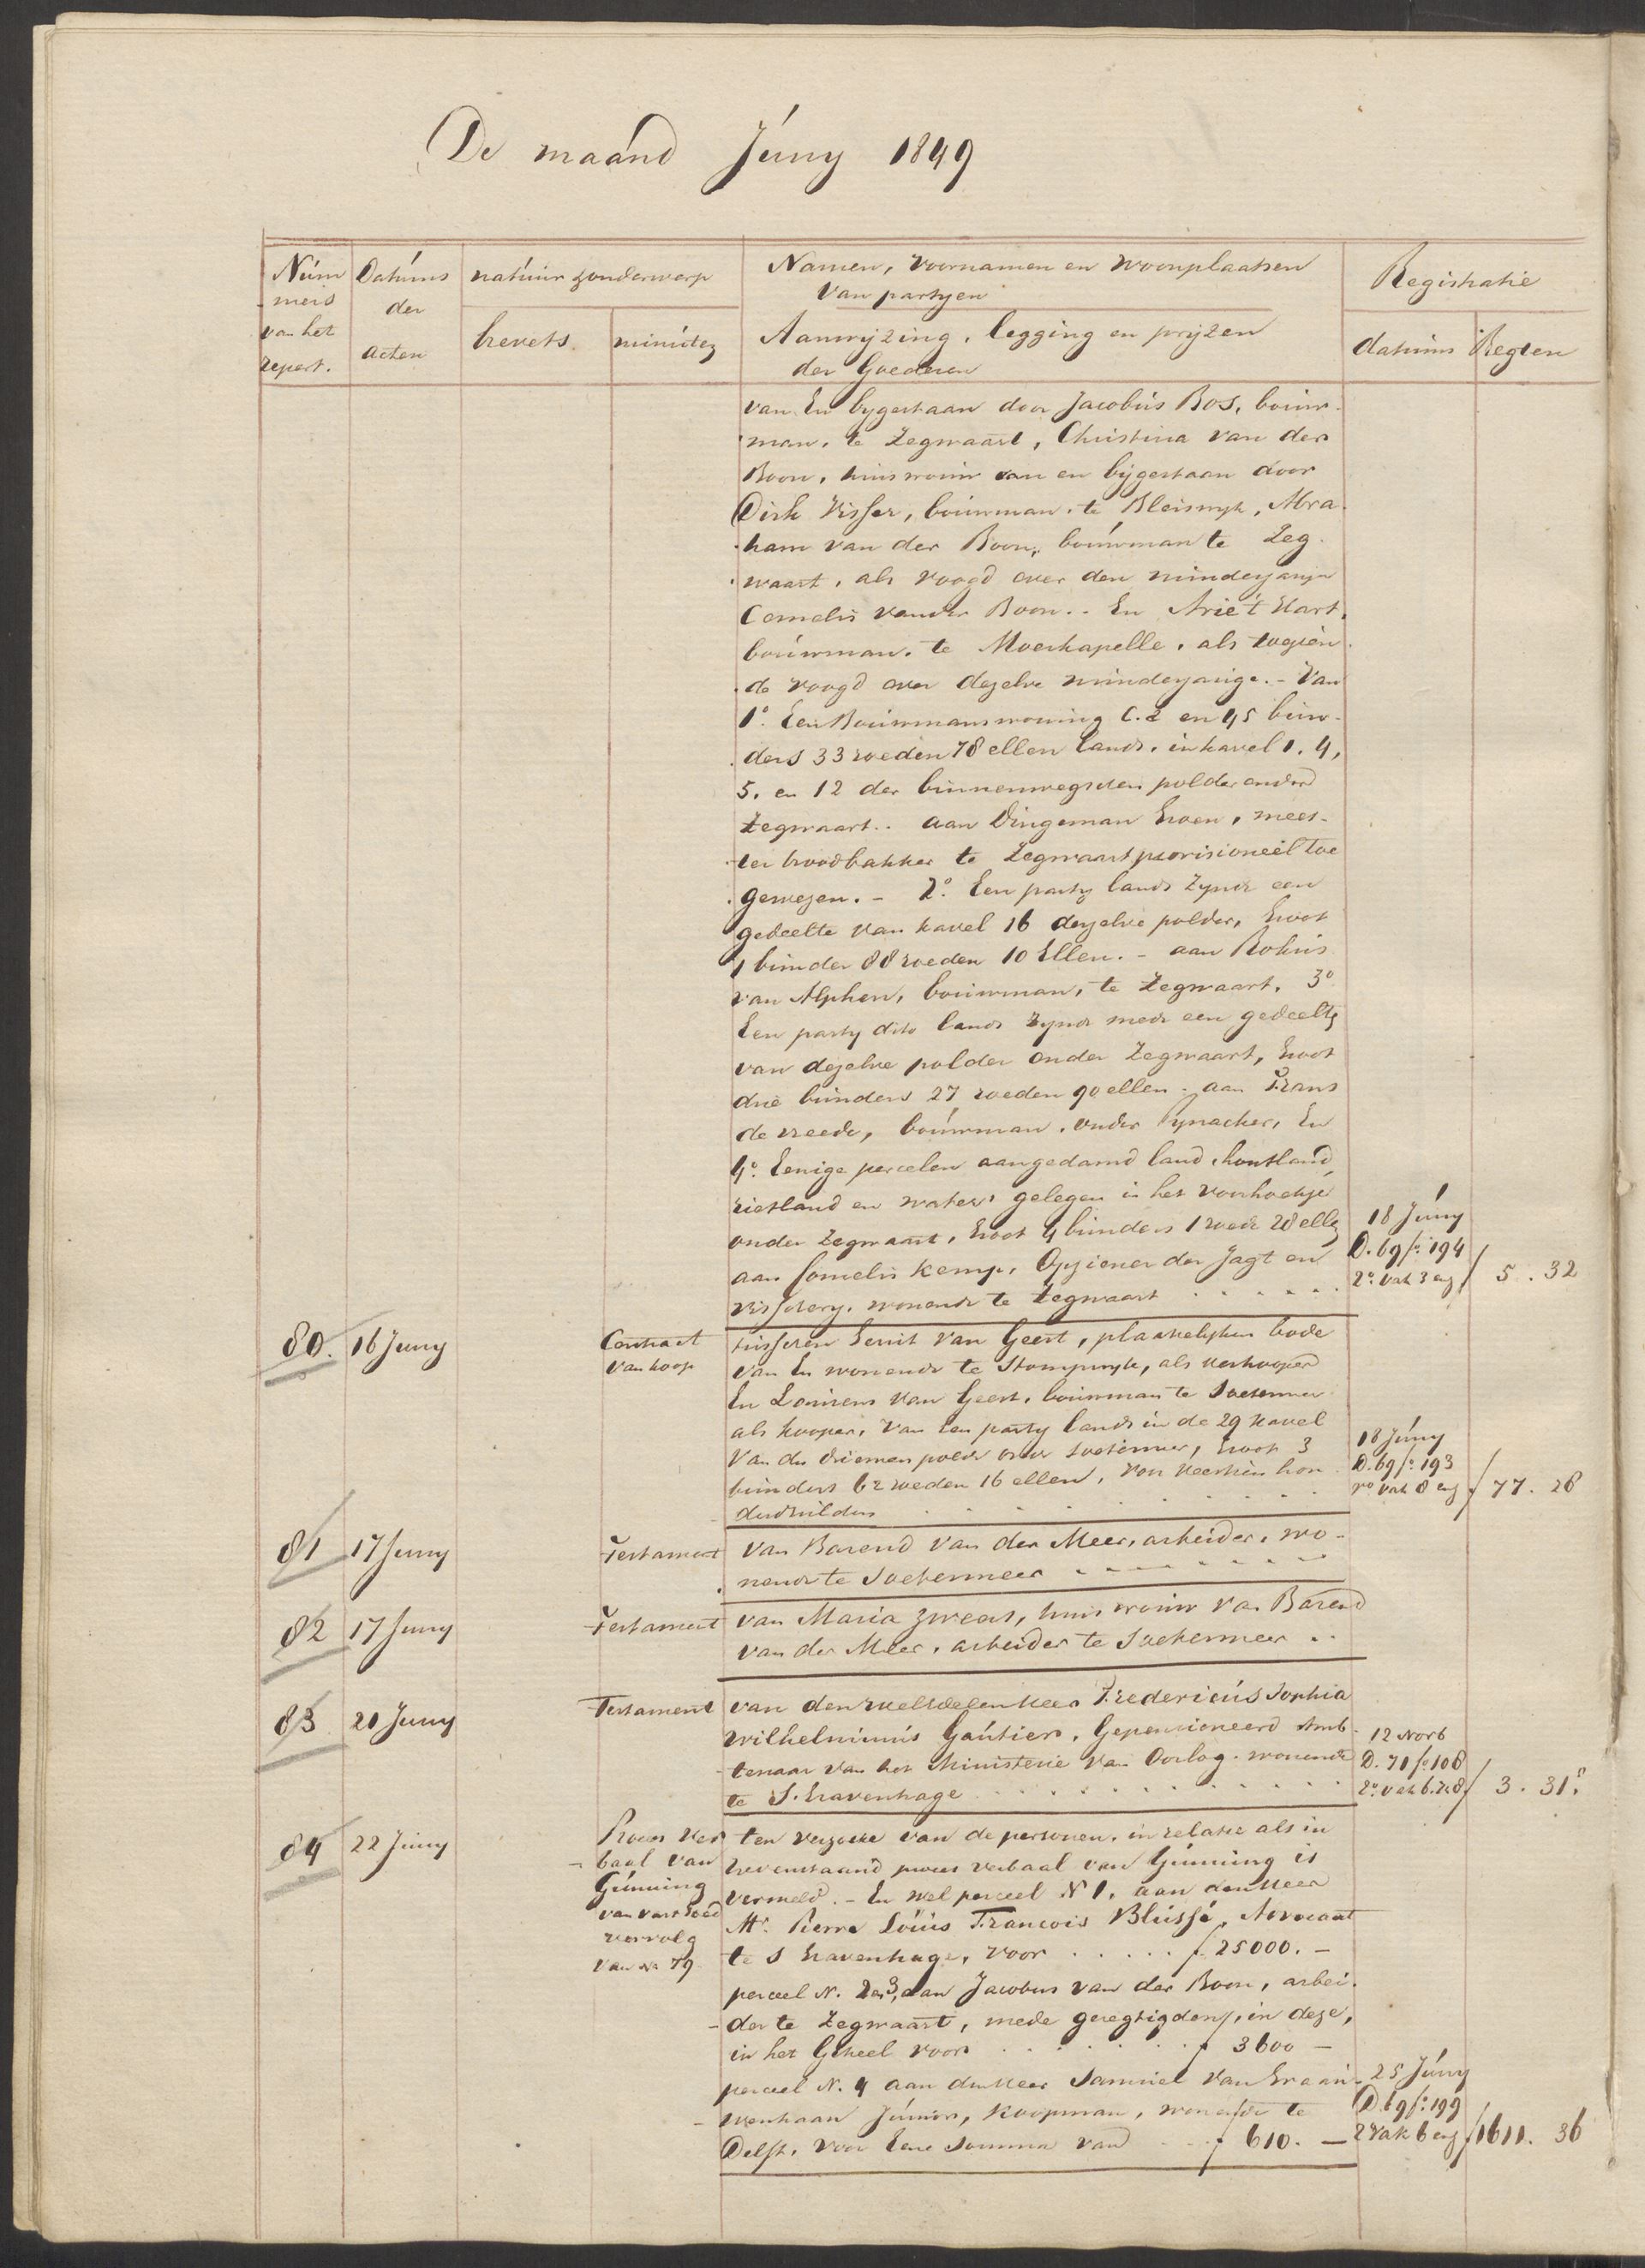 De maand Juny 1849
Num
mers
van het
repert.
Datums
der
acten
natuur & onderwerp
brevets
minuten
Namen, Voornamen en Woonplaatsen
Van partyen
Aanwyzing, legging en pryzen
der Goederen
Registratie
datums
Regten
van En bygestaan door Jacobus Bos, bouw-
man, te Zegwaart, Christina van der
Boon, huisvrouw van en bijgestaan door
Dirk Visser, bouwman te Bleiswyk, Abra
ham van der Boon, bouwman te Zeg-
waart, als voogd over den minderjarigen
Cornelis van der Boon.. En Arie 't Hart,
bouwman. te Moerkapelle, als toezien
de voogd over dezelve minderjarige. - Van
1o. Een Bouwmanswoning C.2 en 45 bun-
ders 33 roeden 78 ellen lands, in kavel 1. 4,
5. en 12 der binnenwegschen polder onder
Zegwaart.. aan Dingeman Groen, mees-
ter broodbakker te Zegwaart provisioneel toe
gewezen. - 2o. Een party lands zynde een
gedeelte van kavel 16 dezelve polder, Groot
1 bunder 88 roeden 10 Ellen. - aan Rokus
van Alphen, bouwman, te Zegwaart, 3o
Een party dito lands zynde mede een gedeelte
van dezelve polder onder Zegwaart, Groot
drie bunders 27 roeden 90 ellen - aan Frans
de vreede, bouwman, onder Pynacker, En
4o. Eenige percelen aangedamd land, houtland,
rietland en water, gelegen in het voorhoekje
onder Zegwaart, Groot 4 bunders 1 roede 28 ellen
aan Cornelis Kemp, Opziener der Jagt en
visschery, wonende te Zegwaart
18 Juny
D. 69 fo. 194
2o. vak 3 enz
f 5. 32
80.
16 Juny
Contract
van koop
tusschen Gerrit van Geest, plaatselyken bode
van En wonende te Stompwyk, als verkooper
En Lourens van Geest, bouwman te Soetermeer
als kooper, Van een party lands in de 29 kavel
Van den driemanspolder onder Soetermeer, Groot 3
bunders 62 roeden 16 ellen, voor veertien hon
derd Guldens
18 Juny
D. 69 fo. 193
ro vak 8 enz
f 77. 28
81
17 Juny
Testament
van Barend van der Meer, arbeider, wo-
nende te Soetermeer
82
17 Juny
Testament
van Maria Zweers, huisvrouw van Barend
van der Meer, arbeider te Soetermeer
83
20 Juny
Testament
van den weledelen Heer Fredericus Sophia
Wilhelminus Gautiers, Gepensioneerd Amb-
tenaar van het Ministerie van Oorlog. wonende
te S. Gravenhage
12 Novb
D. 71 fo. 108
2o. vak 6.7.8
f 3. 31.5
84
22 Juny
Proces ver
baal van
Gunning
van vast Goed
vervolg
van No 79
ten verzoeke van de personen, in relatie als in
bovenstaand proces verbaal van Gunning is
vermeld. - En wel perceel No 1. aan den Heer
Mr. Pierre Louis Francois Blussé, Advocaat
te S Gravenhage, voor f 25000. -
perceel N. 2 en 3, aan Jacobus van der Boon, arbei-
der te Zegwaart, mede geregtigden, in deze,
in het Geheel voor f 3600 -
perceel N. 4 aan den Heer Samuel van Graau-
wenhaan Junior, Koopman, wonende te
Delft, voor Eene Somma van f 610. -
25 Juny
D 69 fo. 199
2 vak 6 enz
f 1611. 36